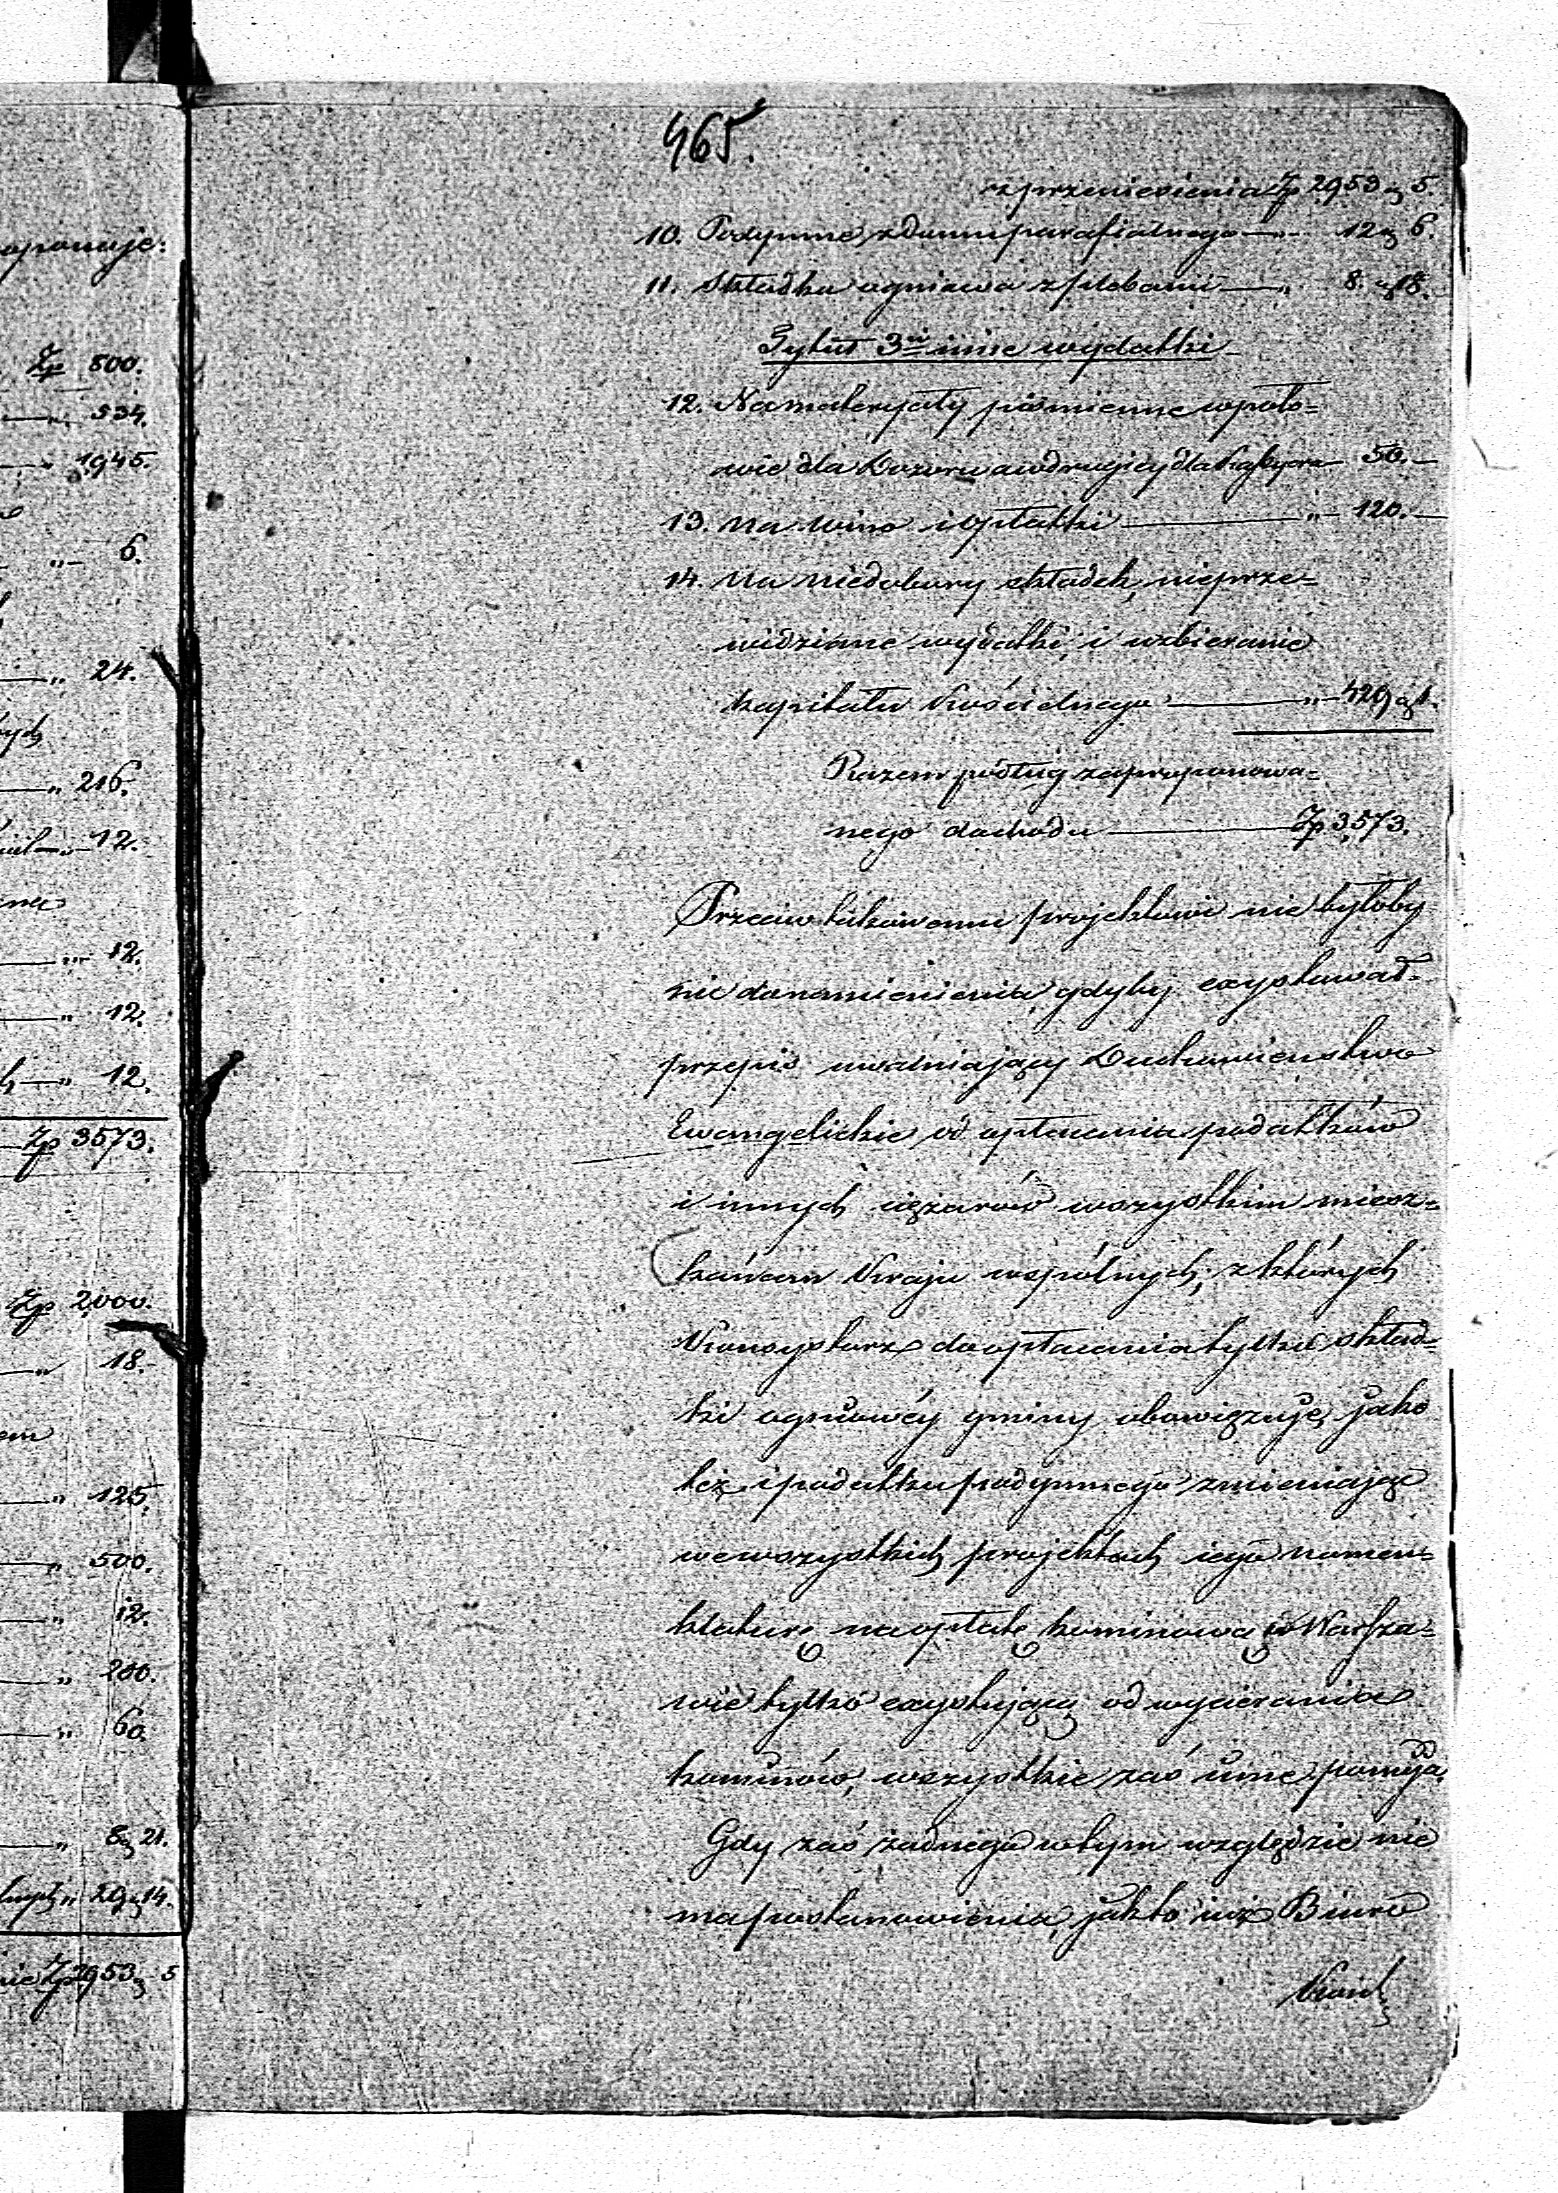 465.
z przeniesienia Zp 2953 g 5.
10. Podymne z domu parafialnego — „ — 12 g 6.
11. Składka ogniowa z plebanii — „ 8. g 18.
Tytuł 3ci inne wydatki
12. Na materyały piśmienne w poło=
wie dla Dozoru a w drugiej dla — 50. —
13. Na wino i opłatki — „ — 120. —
14. Na niedobory składek, nieprze=
widziane wydatki, i uzbieranie
kapitału Kościelnego — „ — 429 g 1.
Razem podług zaproponowa=
nego dochodu — Zp 3573.
Przeciw takowemu projektowi nie byłoby
nic do namienienia, gdyby exystował
przepis uwalniający Duchowieństwo
Ewangelickie od opłacania podatków
i innych ciężarów wszystkim miesz=
kańcom Kraju wspólnych; z których
Konsystorz do opłacania tylko skład=
ki ogniowéy gminy obowięzuje, jako
też i podatku podymnego zmieniając
we wszystkich projektach iego nomen=
klaturę na opłatę kominową w Warsza=
wie tylko exystującą od wycierania
kominów, wszystkie zaś inne pomija.
Gdy zaś żadnego w tym względzie nie
ma postanowienia, jak to iuż Biuro
oponuje:
Zp 500.
— „ 534.
— „ 1945.
„ — 6.
— „ 24.
— „ 216.
— „ — 12.
— „ 12.
— „ 12.
— „ 12.
— Zp 3573.
Zp 2000.
— „ 18.
em
— „ 125.
— „ 500.
— „ 12.
— „ 200.
— „ 60.
— „ 8 g 21.
„ 29 g 14.
nie Zp 2953 g 5